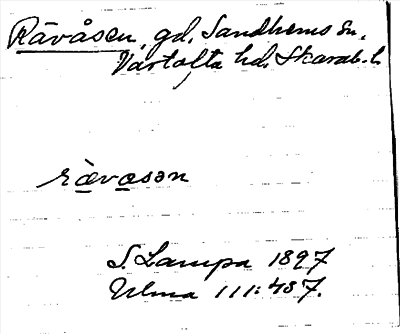 Rävåsen, gd, Sandhems sn.
Vartofta hd. Skarab. l.
rävasən
S. Lampa 1897
Ulma 111:487.